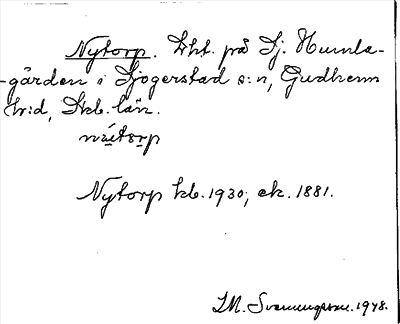 Nytorp. Lht. på Lj. Humla-
-gården i Sjogerstad s:n, Gudhem
hr:d, Skb. län.
nytorp
Nytorp kb. 1930; ek. 1881.
I.M. Svenningsson. 1948.